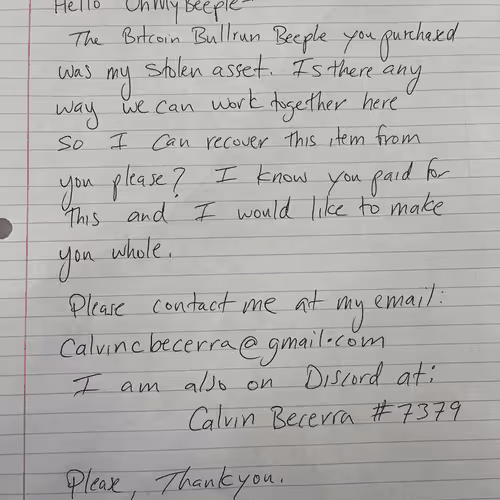 Hello OhMyBeeple-
The Bitcoin Bullrun Beeple you purchased
was my stolen asset. Is there any
way we can work together here
so I can recover this item from
you please? I know you paid for
this and I would like to make
you whole.
Please contact me at my email:
Calvincbecerra@gmail.com
I am also on Discord at:
Calvin Becerra #7379
Please, Thankyou.